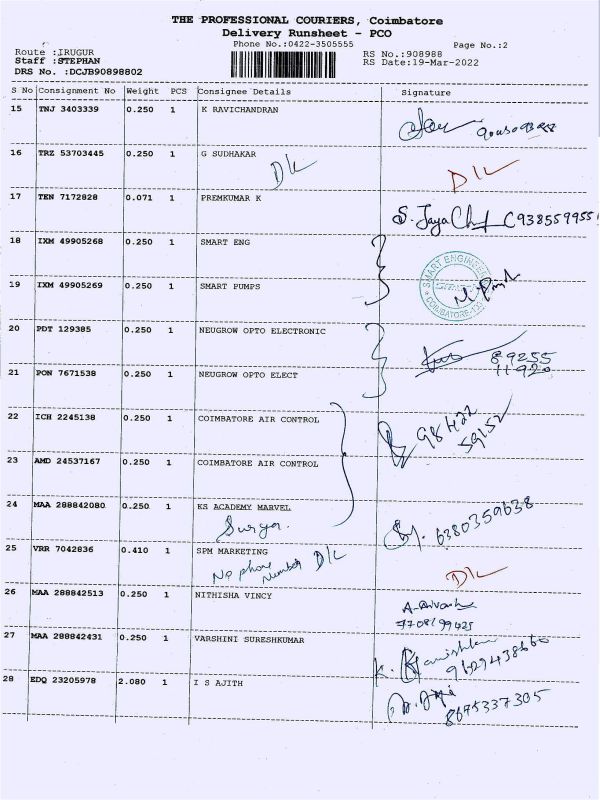 THE PROFESSIONAL COURIERS, Coimbatore
Delivery Runsheet - PCO
Phone No.:0422-3505555 Page No.:2
Route :IRUGUR RS No.:908988
Staff :STEPHAN RS Date:19-Mar-2022
DRS No. :DCJB90898802
S No Consignment No Weight PCS Consignee Details Signature
15 TNJ 3403339 0.250 1 K RAVICHANDRAN
16 TRZ 53703445 0.250 1 G SUDHAKAR
D/L D/L
17 TEN 7172828 0.071 1 PREMKUMAR K
S. Jaya C938559955
18 IXM 49905268 0.250 1 SMART ENG
SMART ENGINEE
19 IXM 49905269 0.250 1 SMART PUMPS
COIMBATORE
20 PDT 129385 0.250 1 NEUGROW OPTO ELECTRONIC
89255
11920
21 PON 7671538 0.250 1 NEUGROW OPTO ELECT
22 ICH 2245138 0.250 1 COIMBATORE AIR CONTROL
98422
59152
23 AMD 24537167 0.250 1 COIMBATORE AIR CONTROL
24 MAA 288842080 0.250 1 KS ACADEMY MARVEL
Surya. 6380359638
25 VRR 7042836 0.410 1 SPM MARKETING
No phone Number D/L D/L
26 MAA 288842513 0.250 1 NITHISHA VINCY
9708199425
27 MAA 288842431 0.250 1 VARSHINI SURESHKUMAR
K.
28 EDQ 23205978 2.080 1 I S AJITH
8675337305